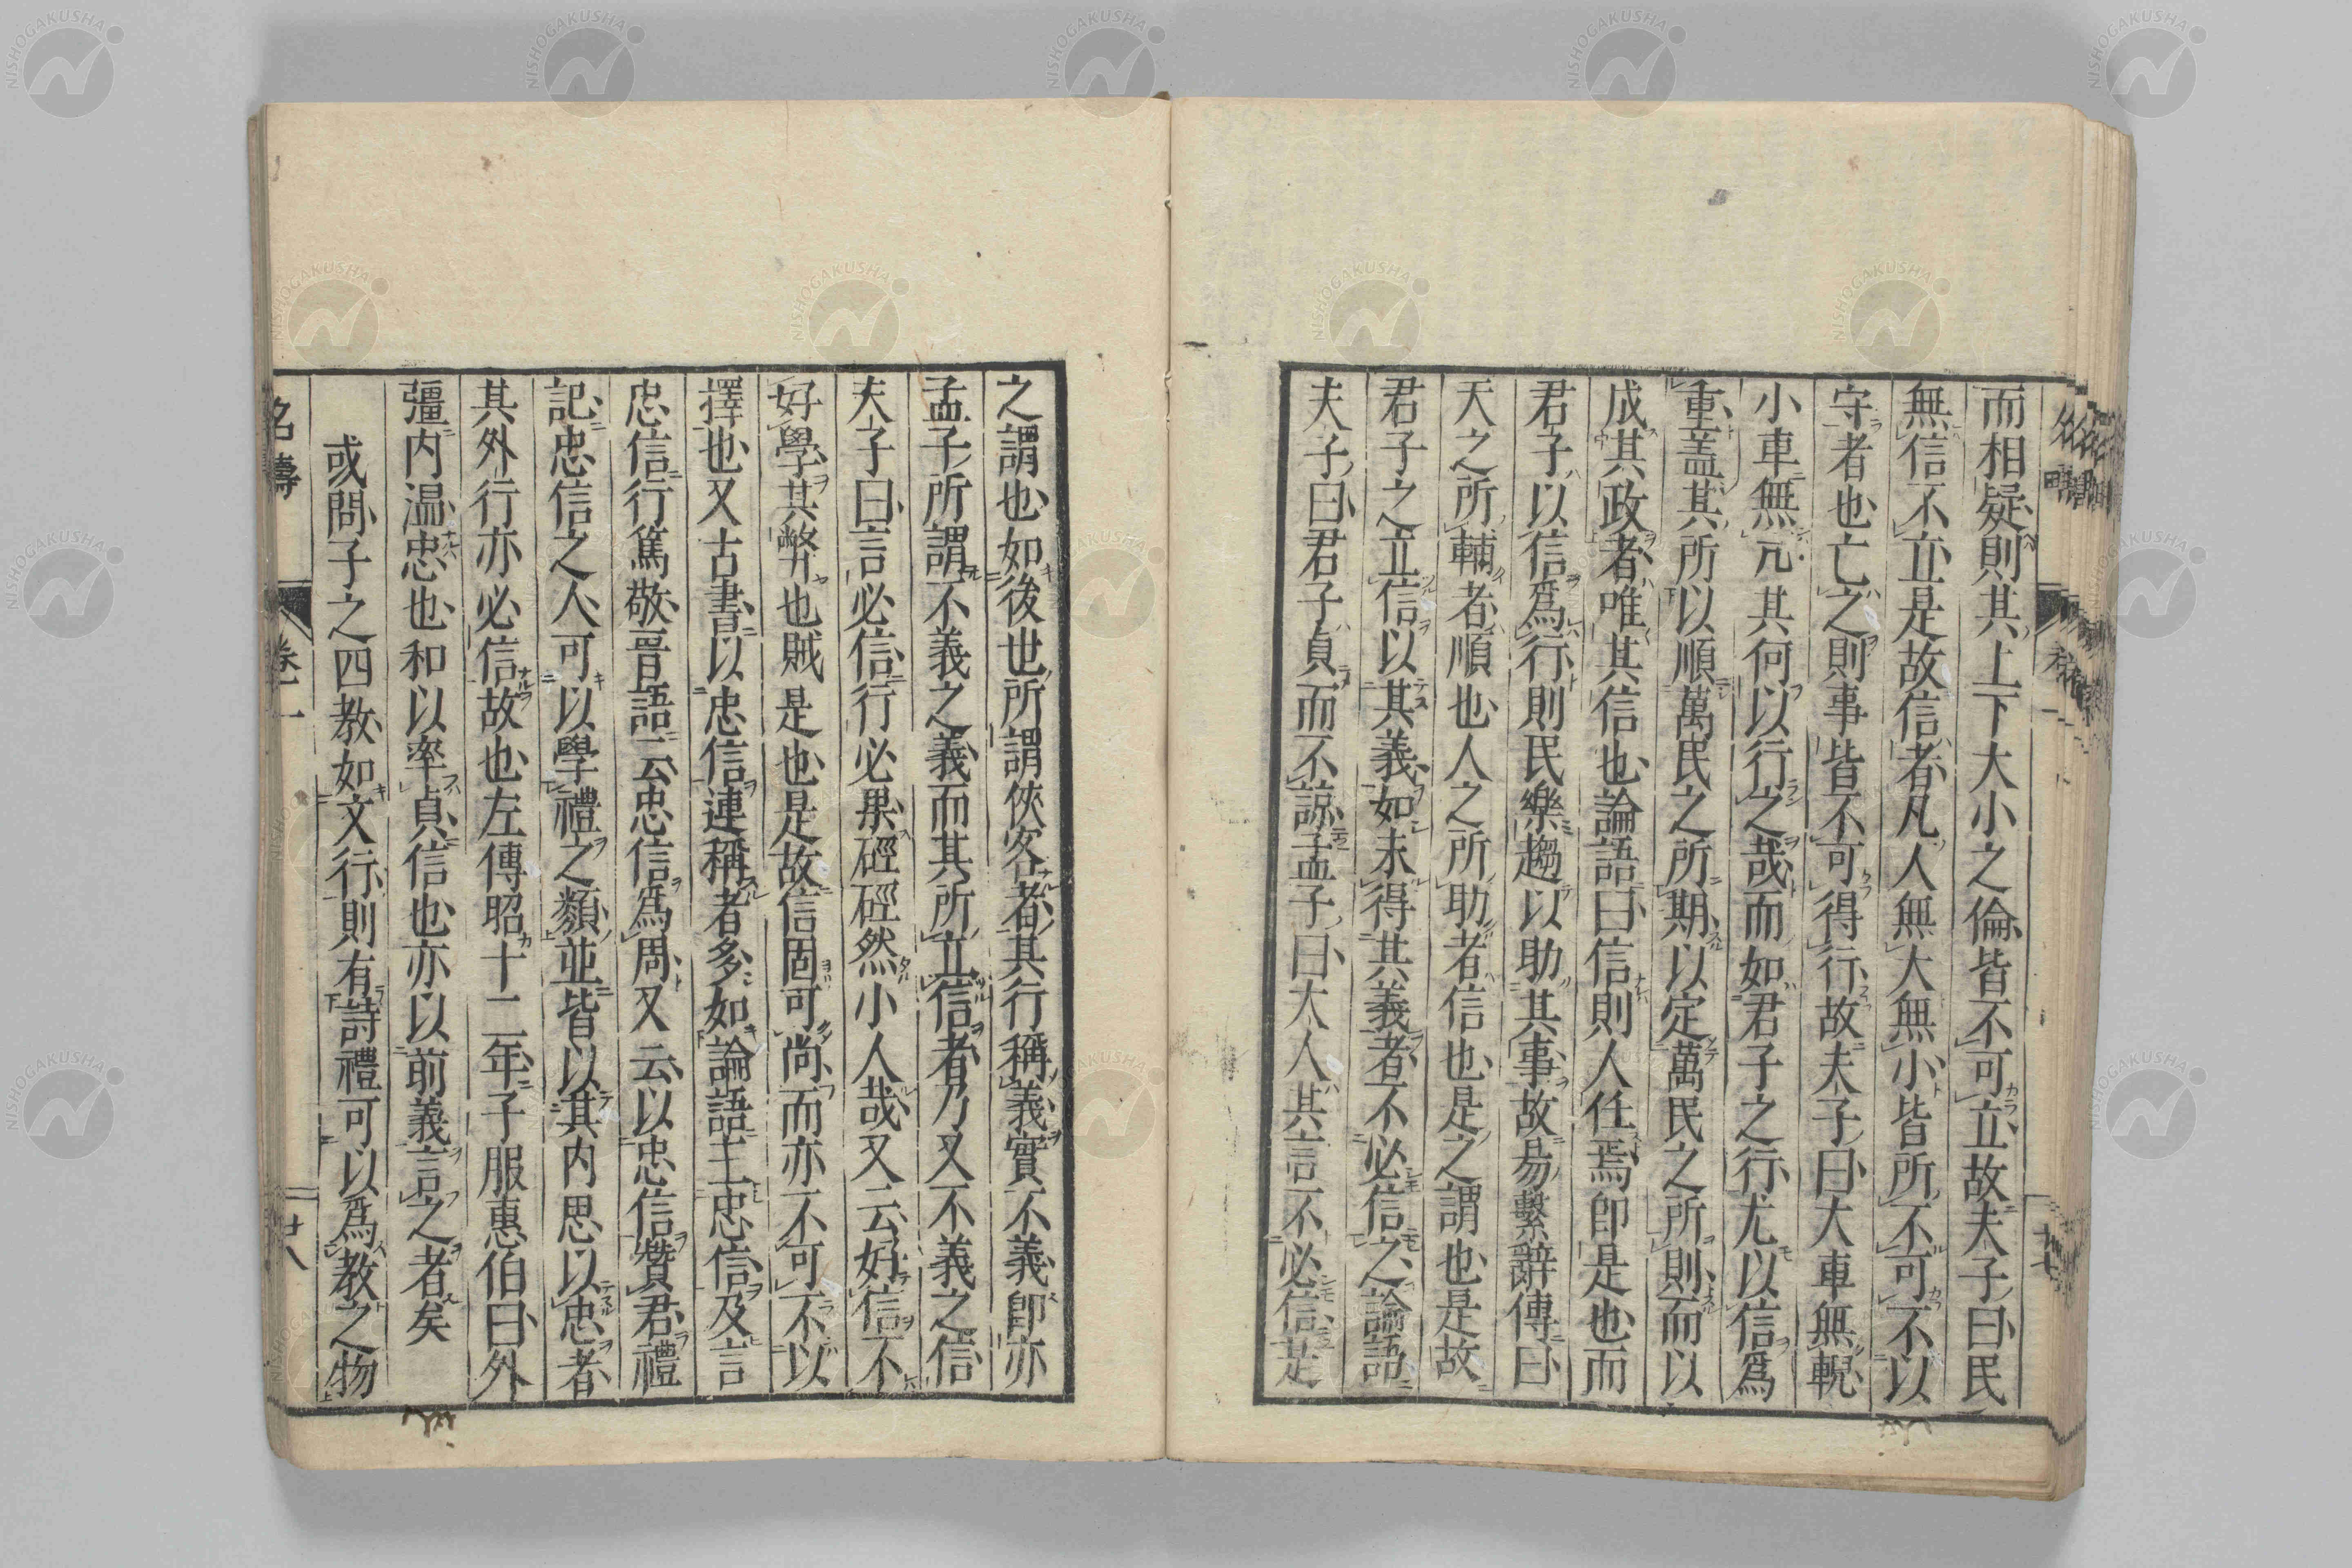 而相疑則其上下大小之倫皆不可立故夫子曰民
無信不立是故信者凡人無大無小皆所不可不以
守者也亡之則事皆不可得行故夫子曰大車無輗
小車無軏其何以行之哉而如君子之行尤以信爲
重蓋其所以順萬民之所期以定萬民之所則而以
成其政者唯其信也論語曰信則人任焉卽是也而
君子以信爲行則民樂趨以助其事故易繫辭傳曰
天之所輔者順也人之所助者信也是之謂也是故
君子之立信以其義如未得其義者不必信之論語
夫子曰君子貞而不諒孟子曰大人其言不必信是
之謂也如後世所謂俠客者其行稱義實不義卽亦
孟子所謂不義之義而其所立信者乃又不義之信
夫子曰言必信行必果硜硜然小人哉又云好信不
好學其弊也賊是也是故信固可尚而亦不可不以
擇也又古書以忠信連稱者多如論語主忠信及言
忠信行篤敬晉語云忠信爲周又云以忠信贊君禮
記忠信之人可以學禮之類並皆以其内思以忠者
其外行亦必信故也左傳昭十二年子服惠伯曰外
彊内温忠也和以率貞信也亦以前義言之者矣
或問子之四教如文行則有詩禮可以爲教之物
名疇
卷一
廿八
NISHOGAKUSHA